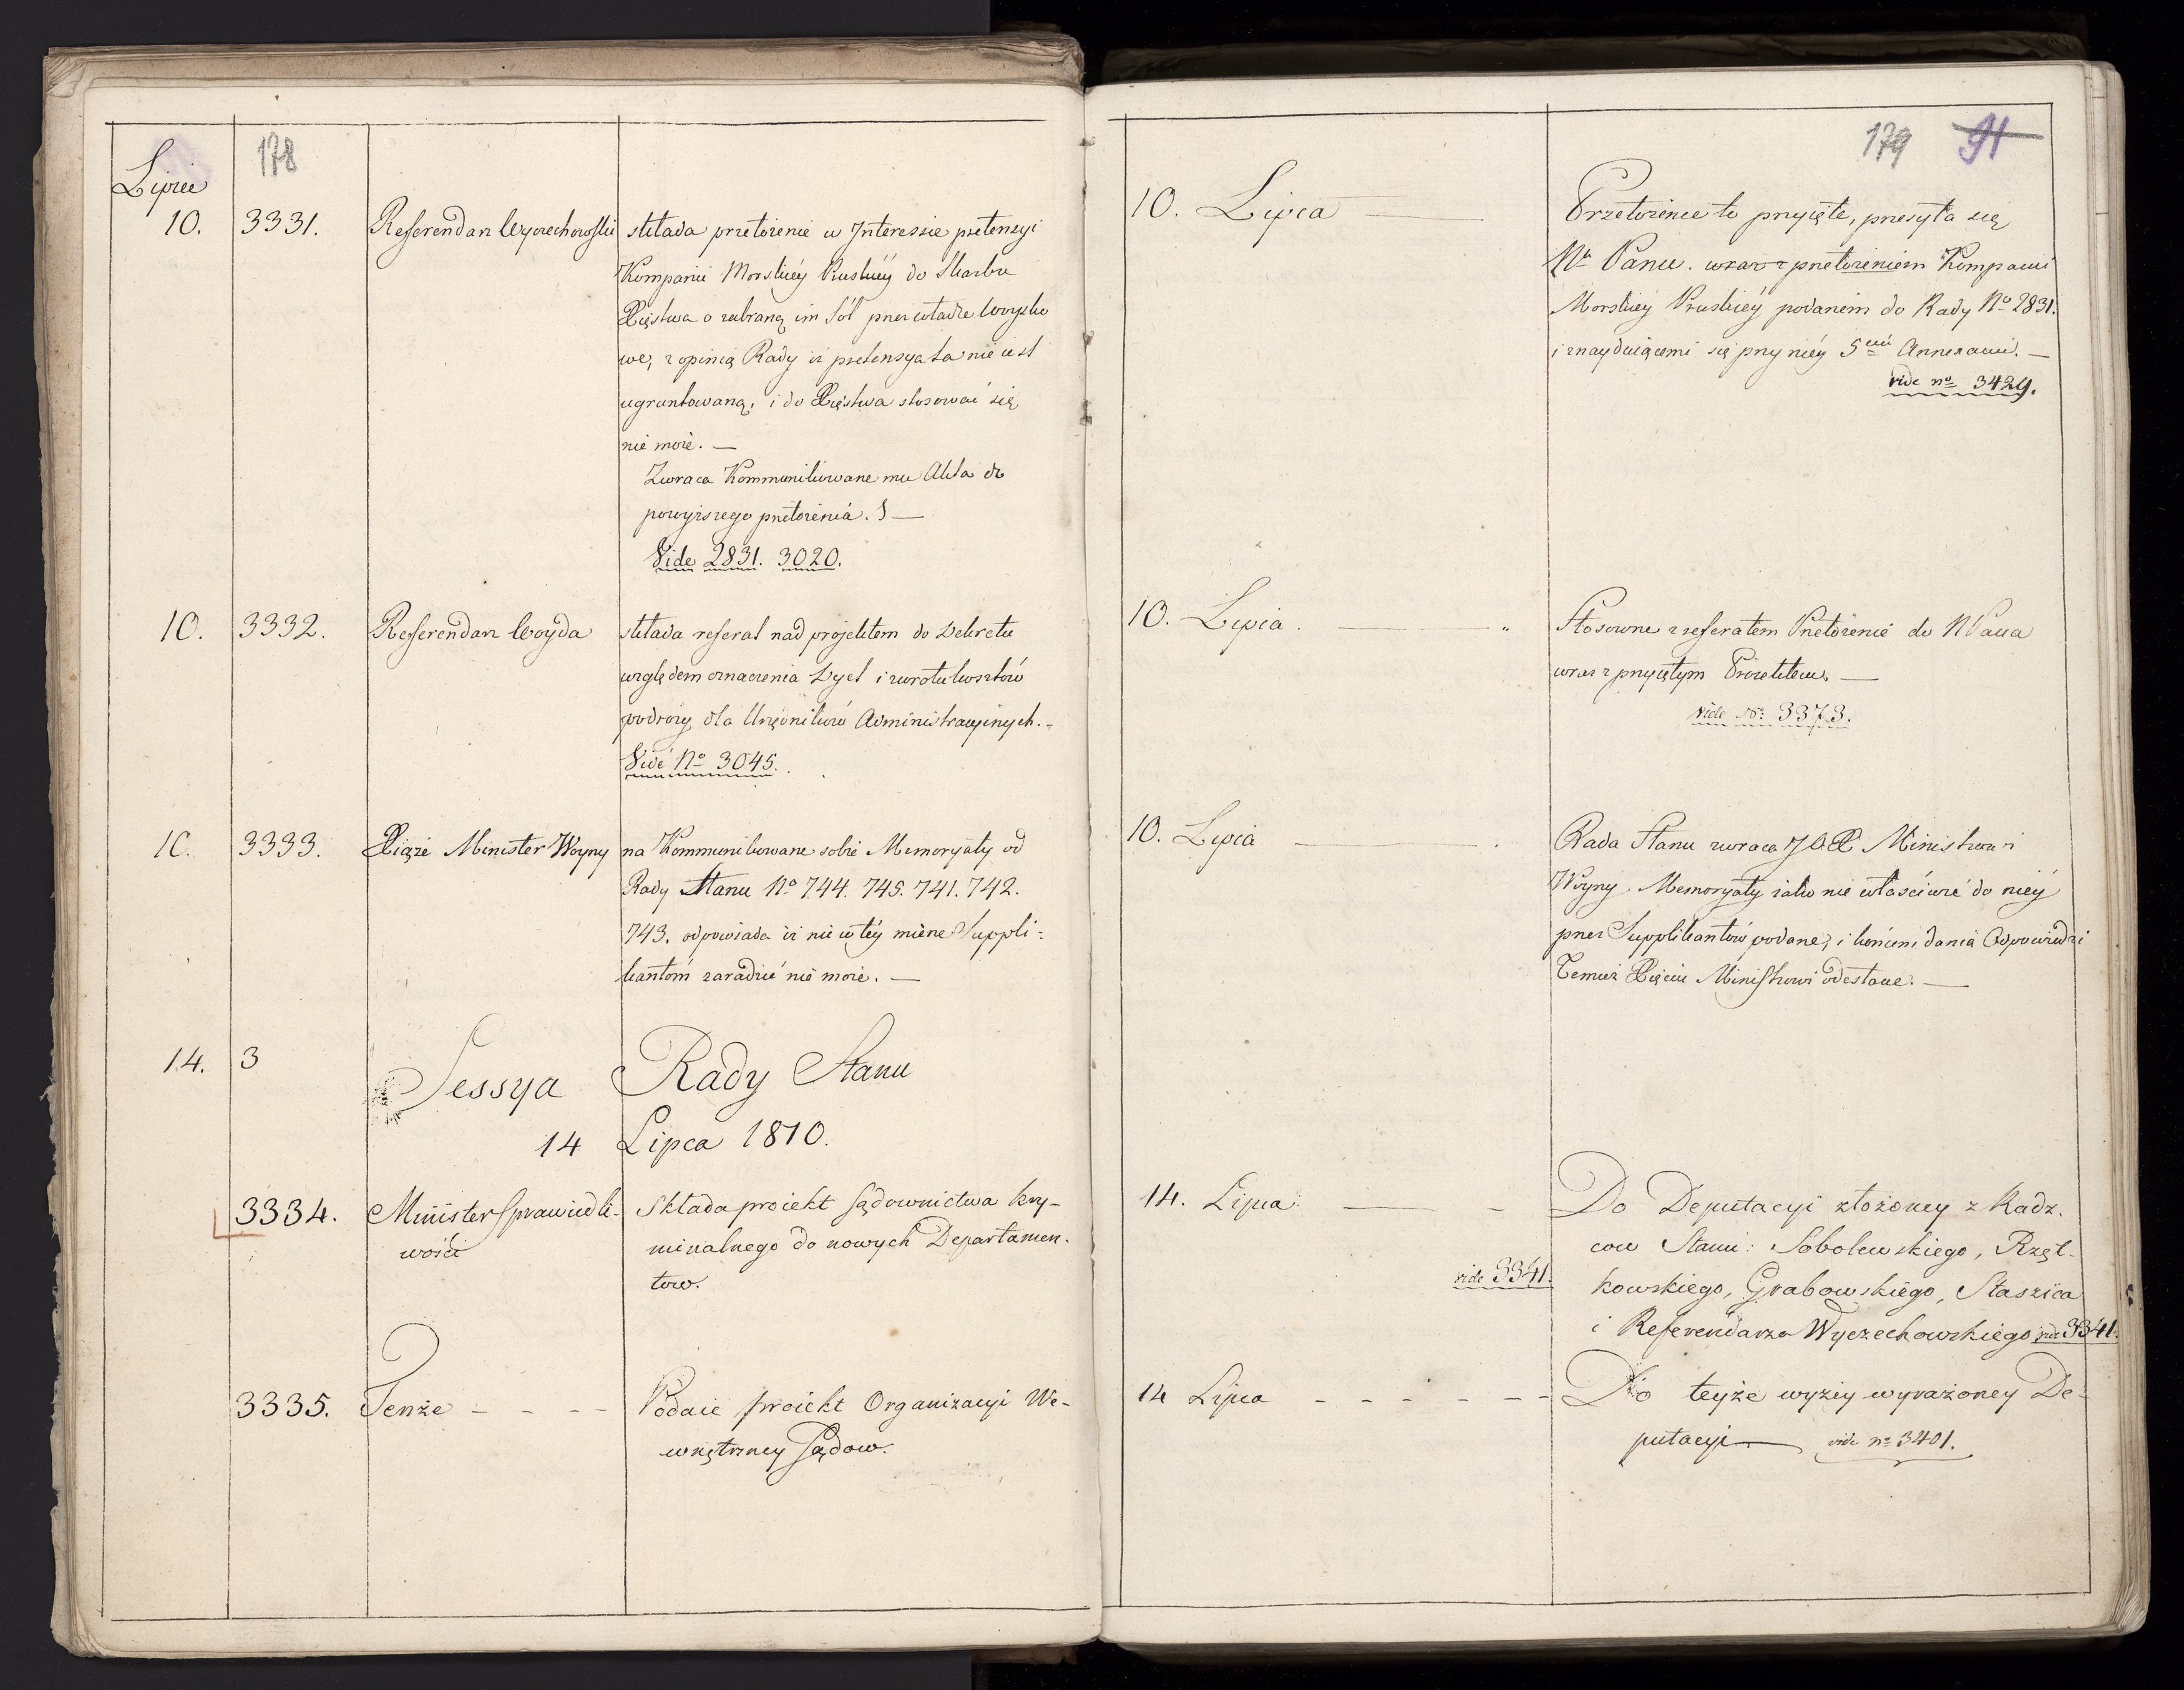 178
Lipiec
10. 3331. Referendarz Wyczechowski składa przełożenie w Interessie pretensyi
Kompanii Morskiéy Pruskiéy do Skarbu
Xięstwa o zabraną im Sól przez władze woysko
we, z opinią Rady iż pretensya ta nie iest
ugruntowaną, i do Xięstwa stosować się
nie może. —
Zwraca Kommunikowane mu Akta do
powyższego przełożenia. —
Vide 2831. 3020.
10. 3332. Referendarz Woyda składa referat nad projektem do Dekretu
względem oznaczenia Dyet i zwrotu kosztów
podróży dla Urzędników Administracyinych. -
Vide No 3045.
10. 3333. Xiąże Minister Woyny na Kommunikowane sobie Memoryały od
Rady Stanu No 744. 745. 741. 742.
743. odpowiada iż nie w téy mierze Suppli-
kantom zaradzić nie może. —
14. 3
Sessya Rady Stanu
14 Lipca 1810.
3334. Minister Sprawiedli- Składa proiekt Sądownictwa kry-
wości minalnego do nowych Departamen-
tow.
3335. Tenże - - - - Podaie proiekt Organizacyi We-
wnętrzney Sądow.
179 91
10. Lipca — Przełożenie to przyięte, przesyła się
N. Panu. wraz z przełożeniem Kompanii
Morskiéy Pruskiéy podanem do Rady No 2831.
i znayduiącemi się przy niéy 5cią Annexami. —
vide no 3429.
10. Lipca. — Stosowne z referatem Przełożenie do N Pana
wraz z przyiętym Proiektem. —
vide No: 3373.
10. Lipca — Rada Stanu zwraca JO. X. Ministrowi
Woyny. Memoryały iako nie właściwie do niéy
przez Supplikantów podane, i końcem dania Odpowiedzi
Temuż Xięciu Ministrowi odesłane. —
14. Lipca — - Do Deputacyi złożoney z Radz-
cow Stanu: Sobolewskiego, Rzęt-
vide 3341.
kowskiego, Grabowskiego, Staszica
i Referendarza Wyczechowskiego vide 3341.
14 Lipca - - - - - - Do teyże wyżey wyrażoney De-
putacyi — vide no 3401.